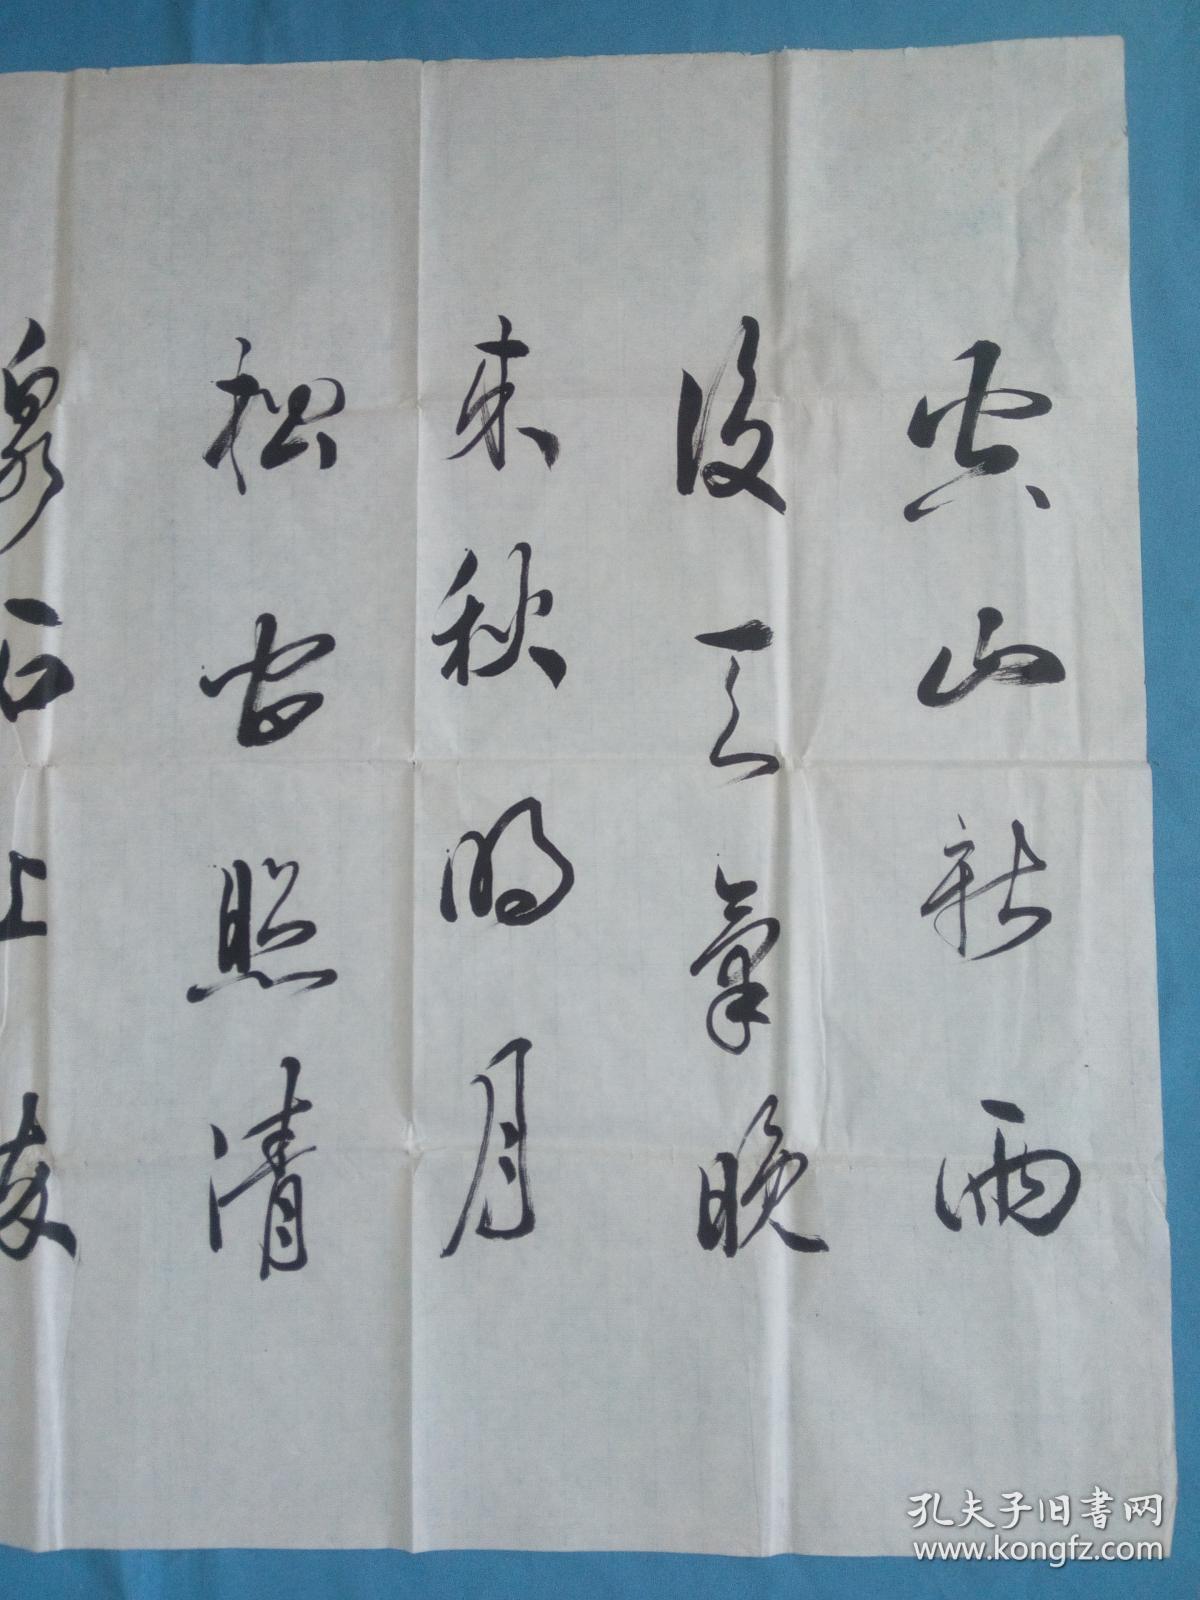 空山新雨
後天氣晚
来秋明月
松间照清
泉石上
孔夫子旧書网
www.kongfz.com